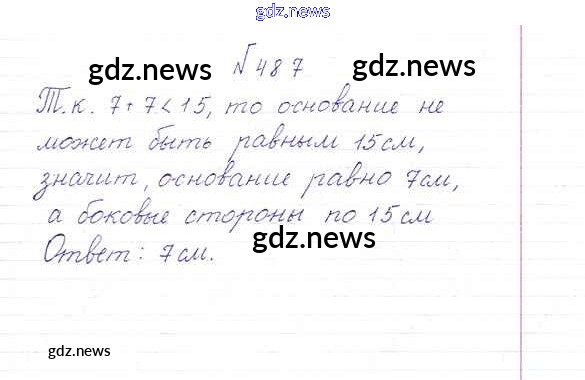 gdz.news
№487
gdz.news gdz.news
Т.к. 7+7<15, то основание не
может быть равным 15см,
значит, основание равно 7см,
а боковые стороны по 15см
gdz.news
Ответ: 7см.
gdz.news